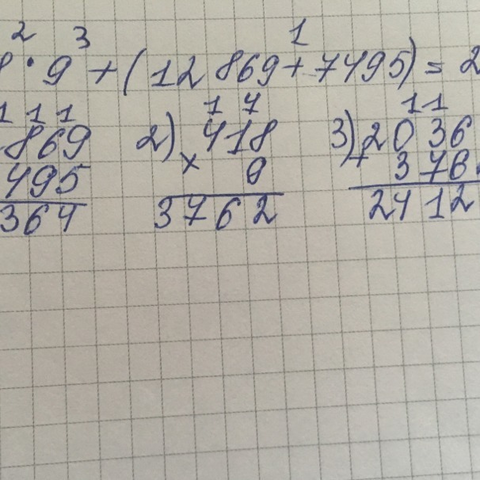 2 3 1
8 · 9 + (12 869 + 7495) = 2
1 1 1 1 7 1 1
869 2) 418 3) 2036
495 × 9 + 376
364 3762 2412